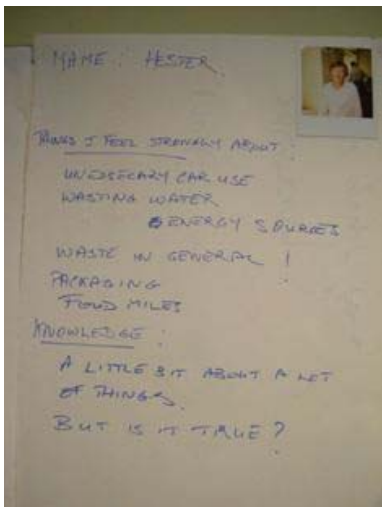 NAME: HESTER
THINGS I FEEL STRONGLY ABOUT:
UNESSECARY CAR USE
WASTING WATER
ENERGY SOURCES
WASTE IN GENERAL!
PACKAGING
FOOD MILES
KNOWLEDGE:
A LITTLE BIT ABOUT A LOT
OF THINGS.
BUT IS IT TRUE?